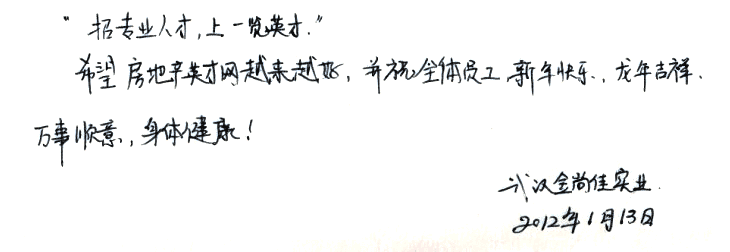 “招专业人才,上一览英才.”
希望房地产英才网越来越好,并祝全体员工新年快乐.,龙年吉祥.
万事顺意.,身体健康!
武汉金尚佳实业.
2012年1月13日